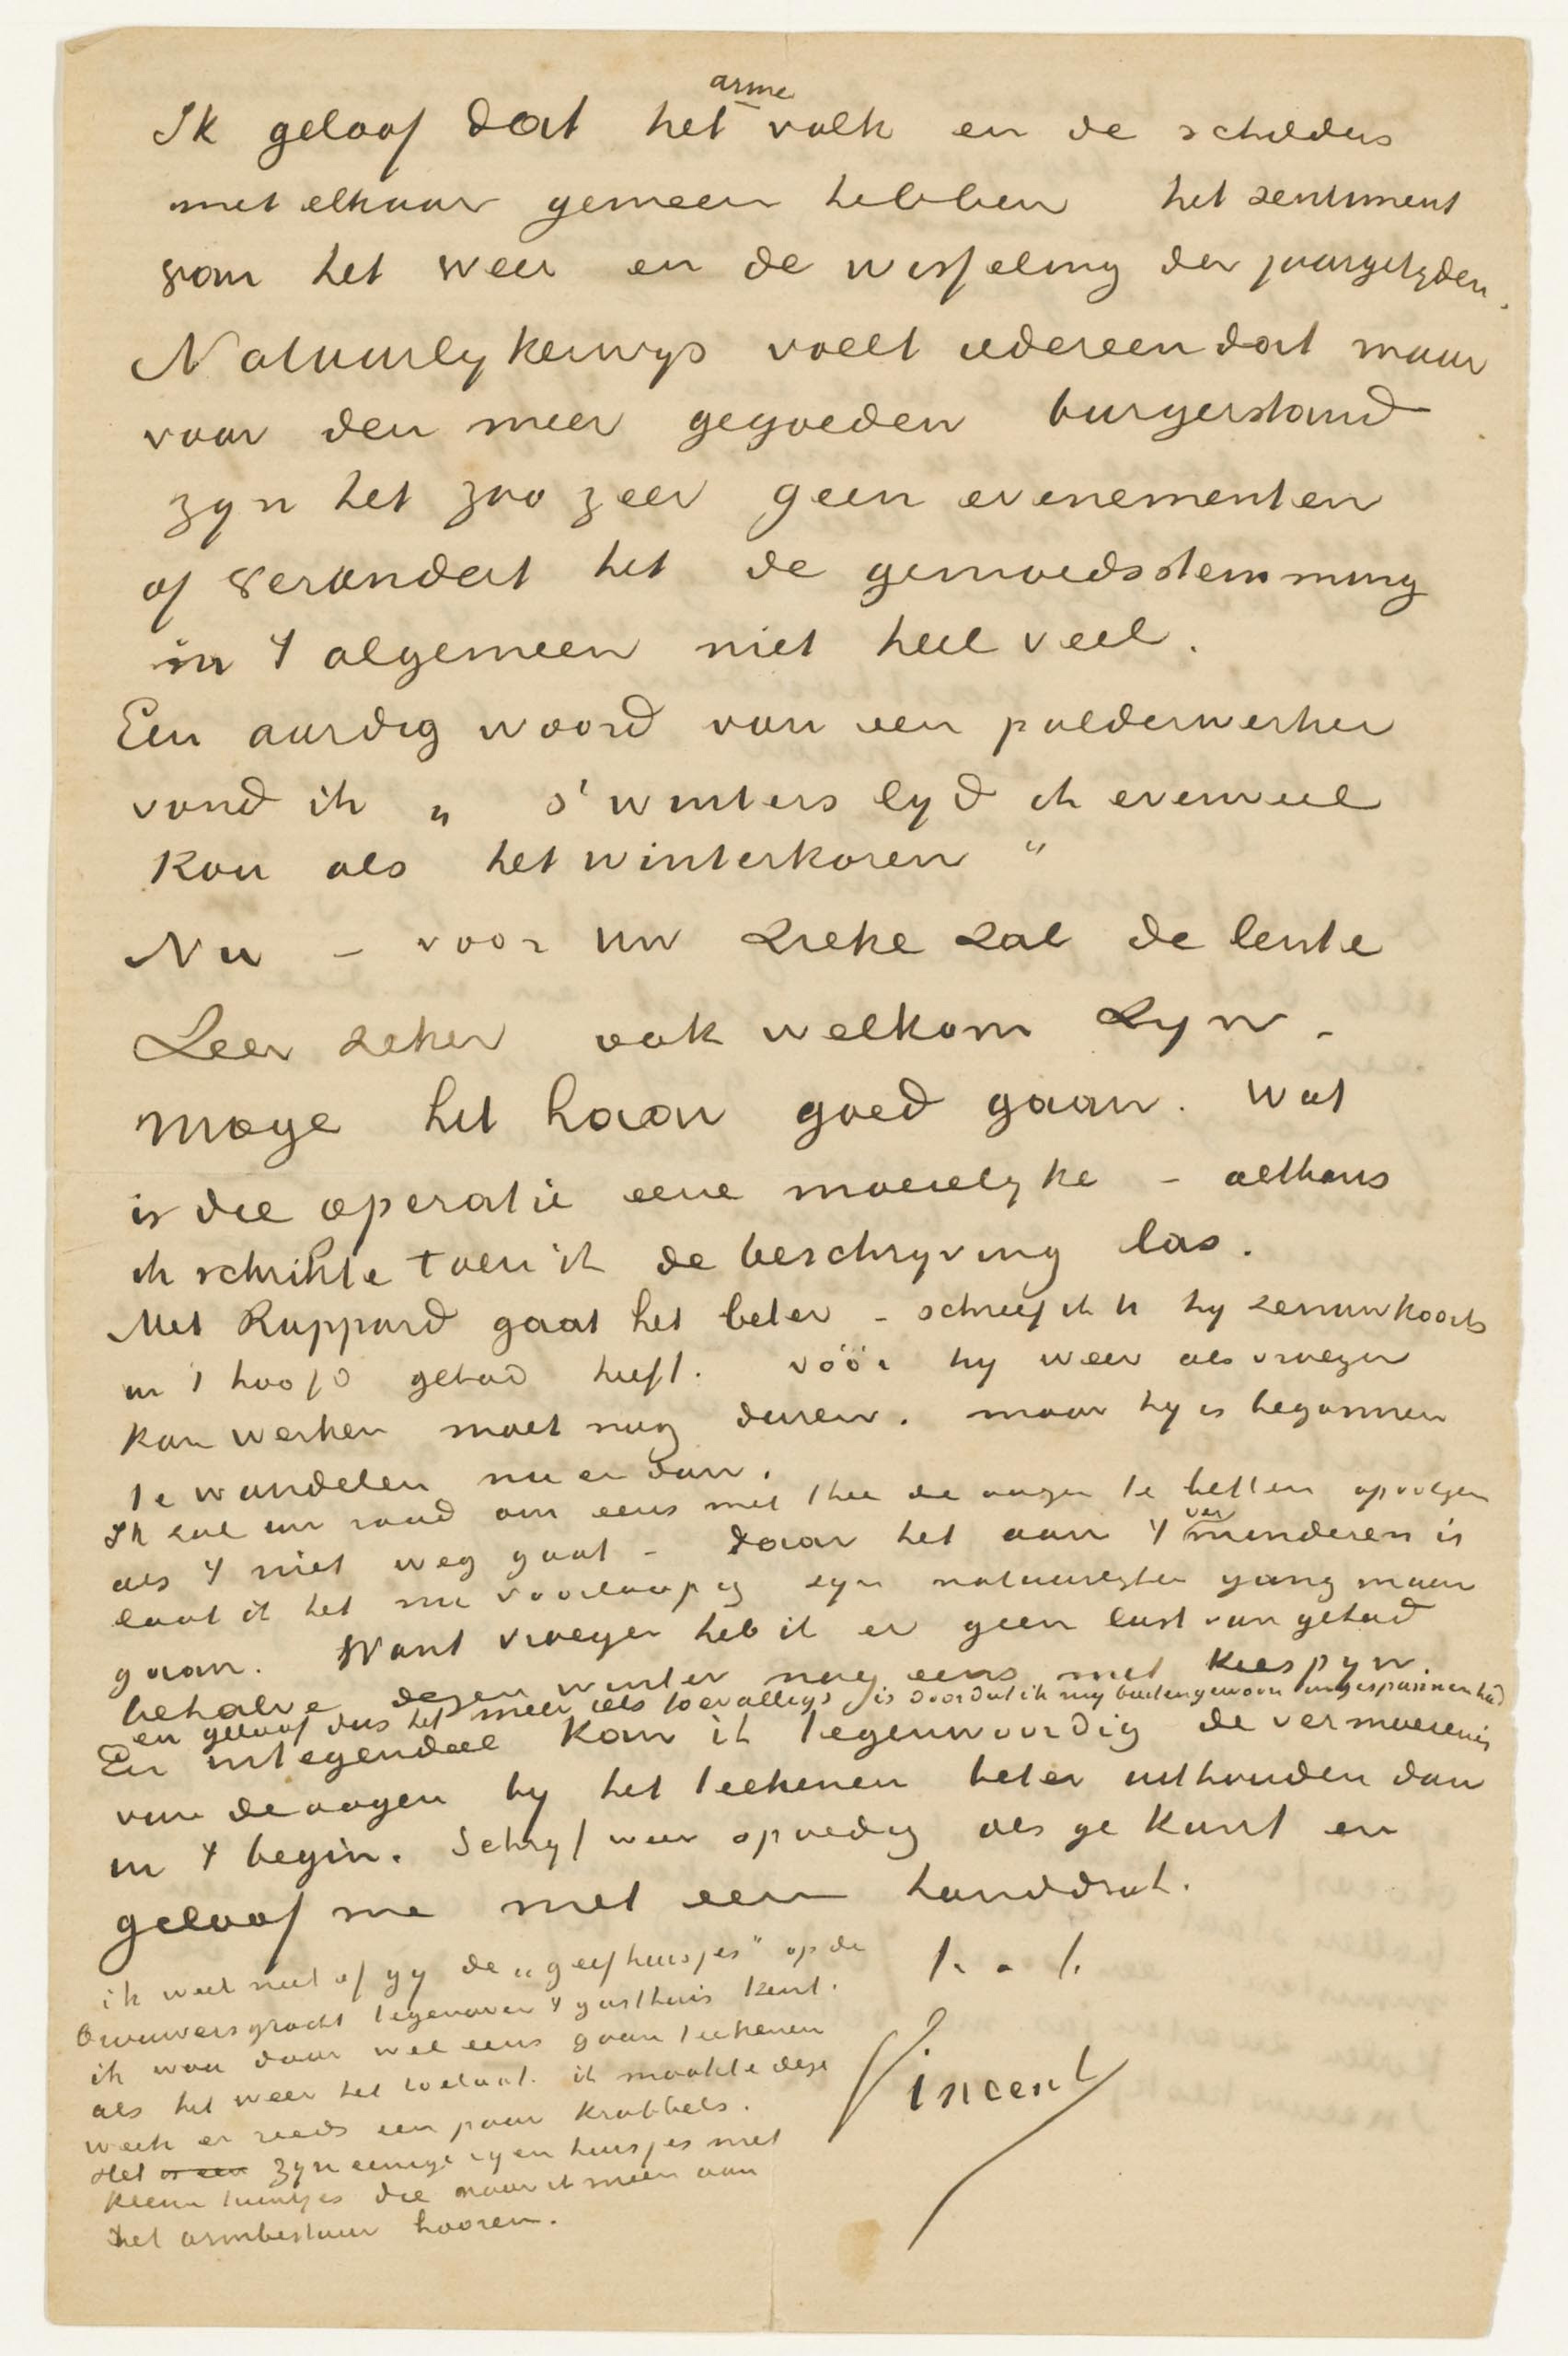 arme
Ik geloof dat het volk en de schilders
met elkaar gemeen hebben het sentiment
van het weer en de wisseling der jaargetyden.
Natuurlykerwys voelt iedereen dat maar
voor den meer gegoeden burgerstand
zyn het zoo zeer geen evenementen
of verandert het de gemoedsstemming
in 't algemeen niet heel veel.
Een aardig woord van een polderwerker
vond ik „ s'winters lyd ik evenveel
kou als het winterkoren "
Nu – voor uw zieke zal de lente
zeer zeker ook welkom zyn –
moge het haar goed gaan. Wat
is die operatie eene moeielyke – althans
ik schrikte toen ik de beschryving las.
Met Rappard gaat het beter – schreef ik U hy zenuwkoorts
in 't hoofd gehad heeft. vóór hy weer als vroeger
kan werken moet nog duren. maar hy is begonnen
te wandelen nu en dan.
Ik zal uw raad om eens met thee de oogen te betten opvolgen
als 't niet weg gaat – daar het aan 't verminderen is
laat ik het nu voorloopig zyn natuurlyken gang maar
gaan. Want vroeger heb ik er geen last van gehad
behalve dezen winter nog eens met kiespyn.
en geloof dus het meer iets toevalligs is doordat ik my buitengewoon ingespannen had
En integendeel kan ik tegenwoordig de vermoeienis
van de oogen by het teekenen beter uithouden dan
in 't begin. Schryf weer spoedig als ge kunt en
geloof me met een handdruk.
t. à t.
Vincent
ik weet niet of gy de „geefhuisjes" op de
Brouwersgracht tegenover 't gasthuis kent.
ik wou daar wel eens gaan teekenen
als het weer het toelaat. ik maakte deze
week er reeds een paar krabbels.
Het is een zyn eenige ryen huisjes met
kleine tuintjes die naar ik meen aan
het armbestuur hooren.